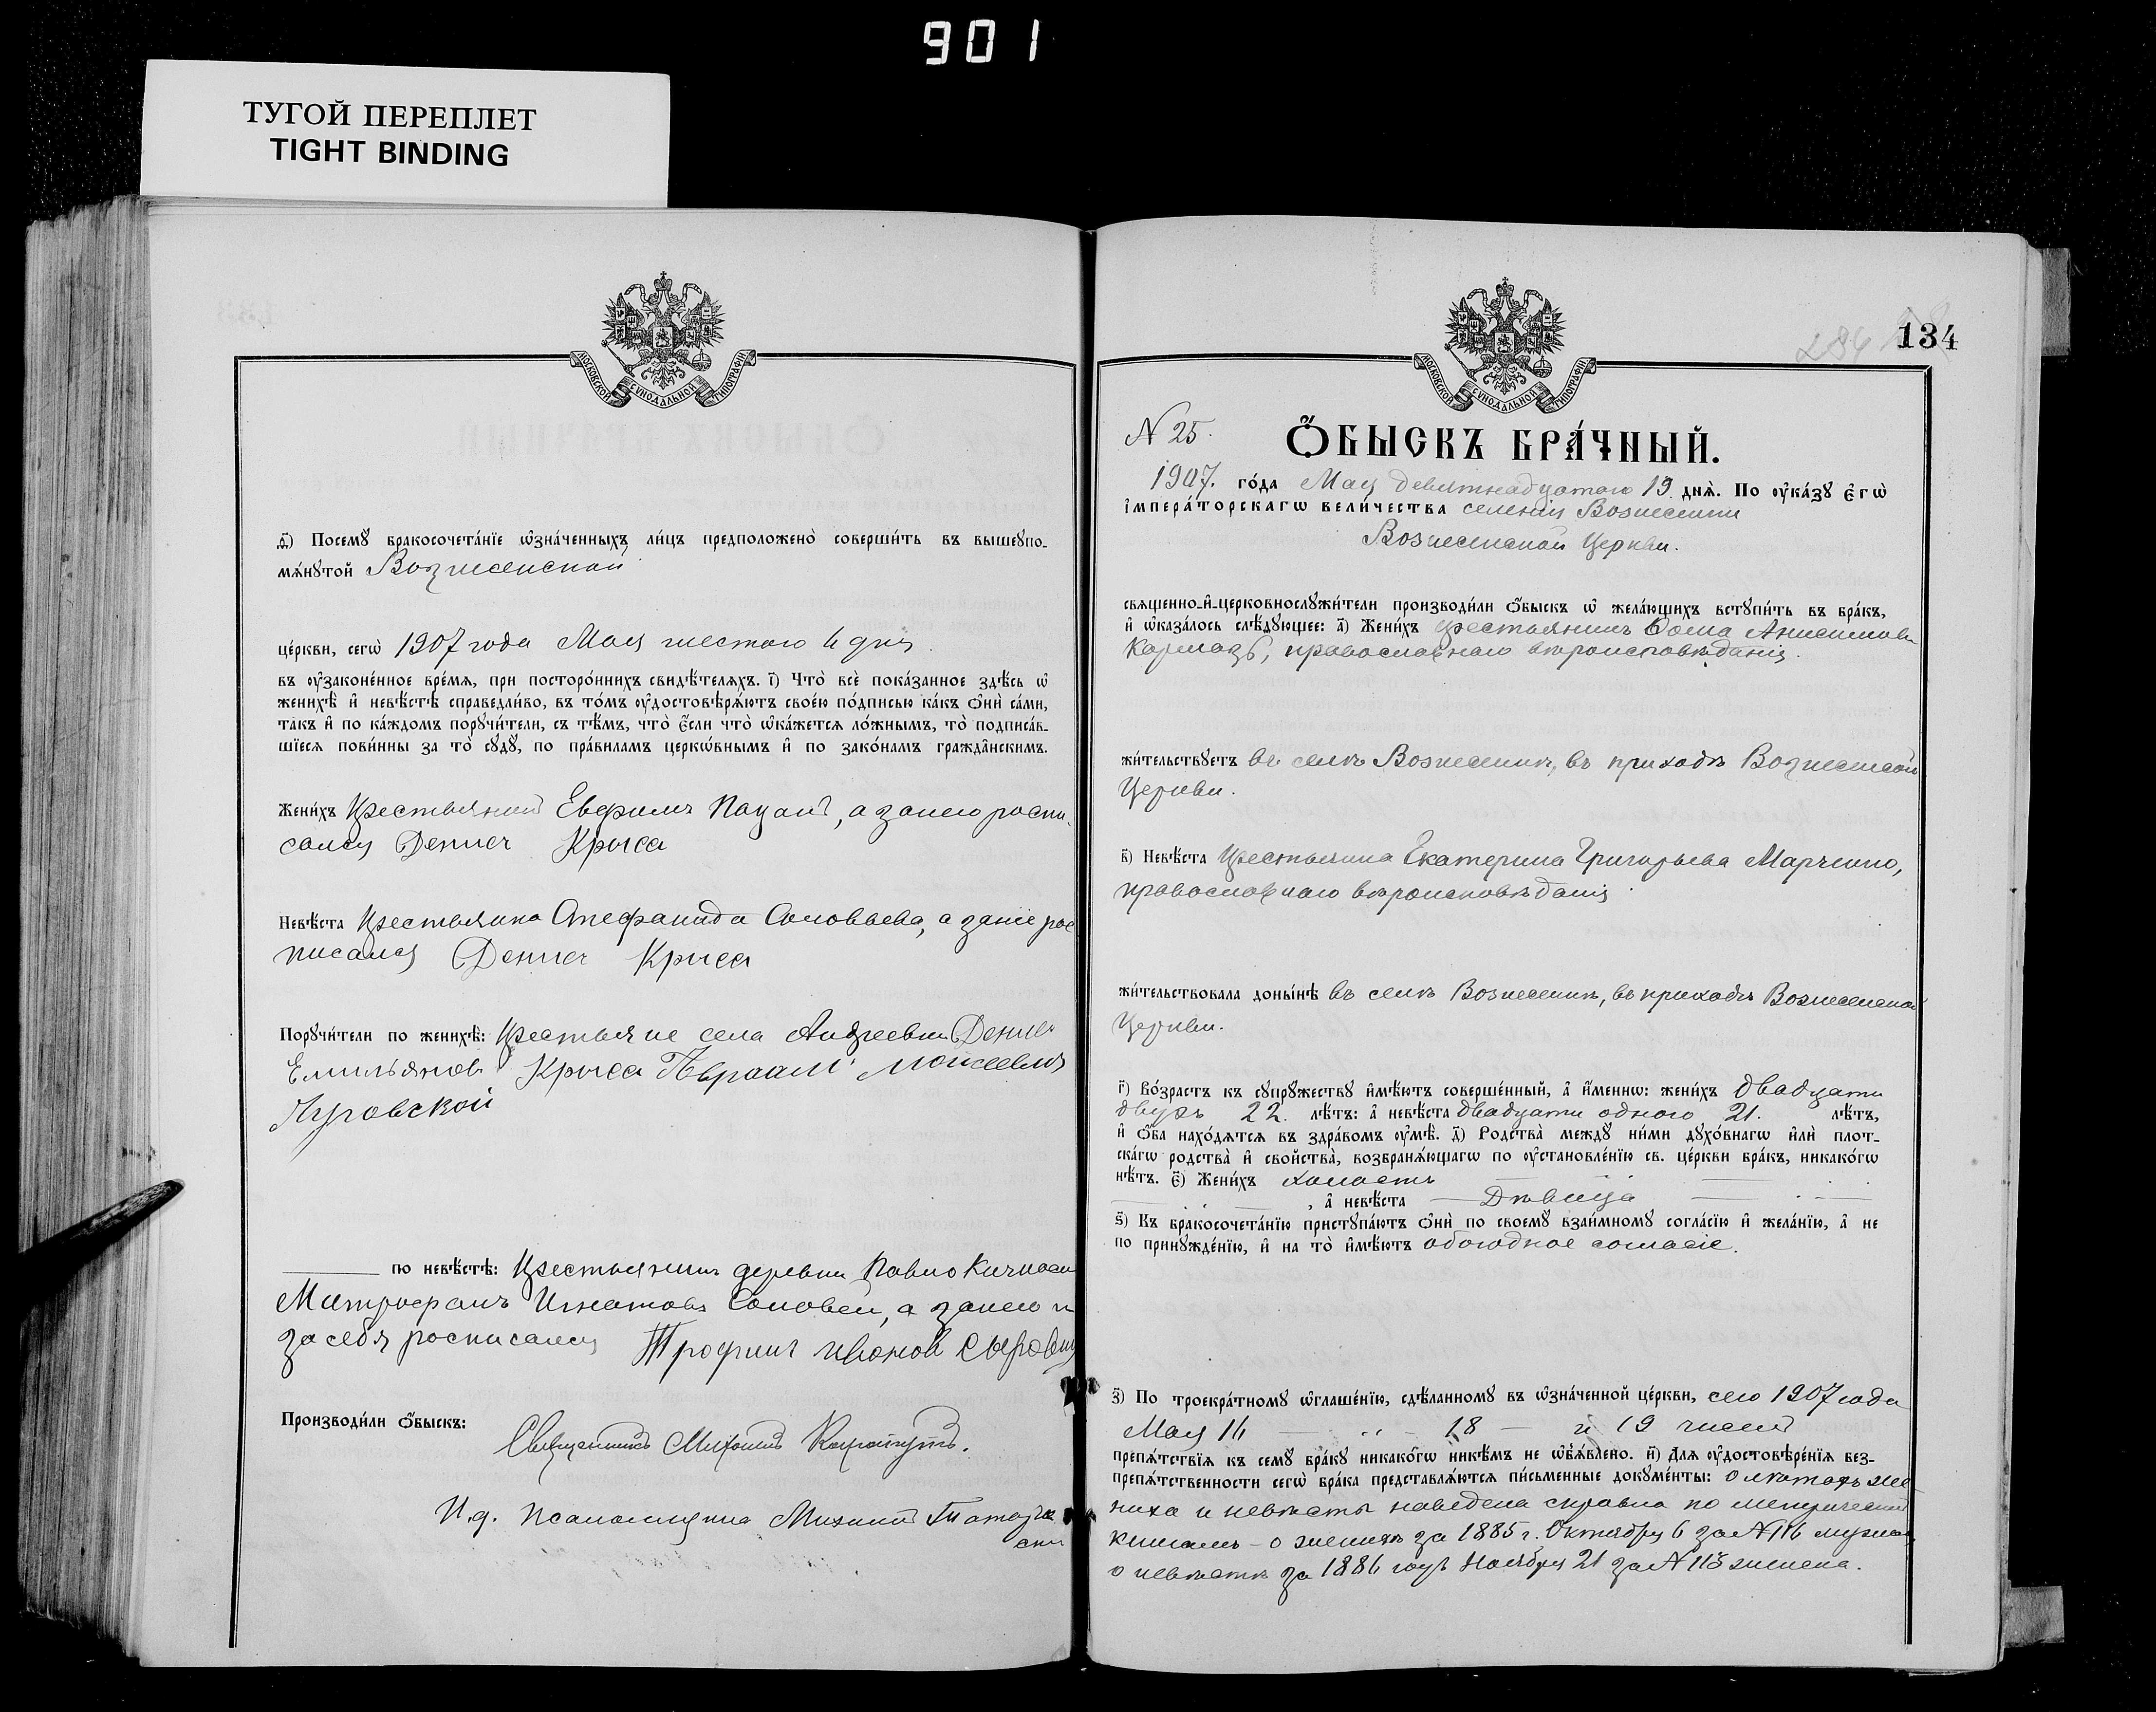 901
ТУГОЙ ПЕРЕПЛЕТ
TIGHT BINDING
МОСКОВСКОЙ СѴНОДАЛЬНОЙ ТИПОГРАФІИ
ѳ҃) Посемꙋ бракосочета́нїе ѡ҆зна́ченныхъ ли́цъ предположено̀ соверши́ть въ вышеꙋпо-
мѧ́нꙋтой Вознесенской
це́ркви, сегѡ̀ 1907 года Мая шестого 6 дня
въ ᲂу҆законе́нное вре́мѧ, при посторо́ннихъ свидѣ́телѧхъ. і҃) Что̀ всѐ пока́занное здѣ́сь ѡ҆
женихѣ̀ и҆ невѣ́стѣ справедли́во, въ то́мъ ᲂу҆достовѣрѧ́ютъ свое́ю по́дписью ка́къ ѻ҆нѝ са́ми,
та́къ и҆ по ка́ждомъ порꙋчи́тели, съ тѣ́мъ, что̀ є҆́сли что̀ ѡ҆ка́жетсѧ ло́жнымъ, то̀ подписа́в-
шїесѧ пови́нны за то̀ сꙋдꙋ̀, по пра́виламъ церко́внымъ и҆ по зако́намъ гражда́нскимъ.
Жени́хъ Крестьянинъ Евфимъ Пацанъ, а занего роспи-
сался Денисъ Крыса
Невѣ́ста Крестьянка Стефанида Соловьева, а заніе рос
писался Денисъ Крыса
Порꙋчи́тели по женихѣ̀: Крестьяне села Андреевки Денисъ
Емильянов Крыса Авраамъ Моисеевъ
Луговской
по невѣ́стѣ: Крестьянинъ деревни Павло Кичкаси
Митрофанъ Игнатовъ Соловей, а занего и
за себя росписался Трофимъ Иванов Сыровой
Производи́ли ѻ҆бы́скъ:
Священникъ Михаилъ
И. д. псаломщика Михаилъ
134
МОСКОВСКОЙ СѴНОДАЛЬНОЙ ТИПОГРАФІИ
N 25.
Ѻ҆БЫСКЪ БРА́ЧНЫЙ.
1907. го́да Мая девятнадцатого 19 днѧ̀. По ᲂу҆ка́зꙋ є҆гѡ̀
і҆мпера́торскагѡ вели́чества селенія Вознесенки
Вознесенской Церкви.
свѧщенно-и҆-церковнослꙋжи́тели производи́ли ѻ҆бы́скъ ѡ҆ жела́ющихъ встꙋпи́ть въ бра́къ,
и҆ ѡ҆каза́лось слѣ́дꙋющее: а҃) Жени́хъ крестьянинъ Фома Анисимовъ
Кармазь, православнаго вѣроисповѣданія.
жи́тельствꙋетъ въ селѣ Вознесенкѣ, въ приходѣ Вознесенской
Церкви.
в҃) Невѣ́ста Крестьянка Екатерина Григорьева Марченко,
православнаго вѣроисповѣданія
жи́тельствовала доны́нѣ въ селѣ Вознесенкѣ, въ приходѣ Вознесенской
Церкви.
г҃) Во́зрастъ къ сꙋпрꙋ́жествꙋ и҆мѣ́ютъ соверше́нный, а҆ и҆́меннѡ: жени́хъ двадцати
двухъ 22. лѣ́тъ: а҆ невѣ́ста двадцати одного 21. лѣ́тъ,
и҆ ѻ҆́ба нахо́дѧтсѧ въ здра́вомъ ᲂу҆мѣ̀. д҃) Родства̀ междꙋ̀ ни́ми дꙋхо́внагѡ и҆лѝ плот-
ска́гѡ родства̀ и҆ сво́йства̀, возбранѧ́ющагѡ по ᲂу҆становле́нїю св. це́ркви бра́къ, никако́гѡ
нѣ́тъ. є҃) Жени́хъ холостъ
, а҆ невѣ́ста Дѣвица
ѕ҃) Къ бракосочета́нїю пристꙋпа́ютъ ѻ҆нѝ по своемꙋ̀ взаи́мномꙋ согла́сїю и҆ жела́нїю, а҆ не
по принꙋжде́нїю, и҆ на то̀ и҆мѣ́ютъ обоюдное согласіе.
з҃) По троекра́тномꙋ ѡ҆глаше́нїю, сдѣ́ланномꙋ въ ѡ҆зна́ченной це́ркви, сего 1907 года
Мая 16 18 и 19 чиселъ
препѧ́тствїѧ къ семꙋ̀ бра́кꙋ никако́гѡ никѣ́мъ не ѡ҆б̾ѧ́влено. и҃) Длѧ ᲂу҆достовѣре́нїѧ без-
препѧ́тственности сегѡ̀ бра́ка представлѧ́ютсѧ пи́сьменные докꙋме́нты: о лѣтахъ же-
ниха и невѣсты наведена справка по метрическимъ
книгамъ – о женихѣ за 1885 г. Октября 6 за N 116 мужска
о невѣстѣ за 1886 годъ Ноября 21 за N 113 женска.